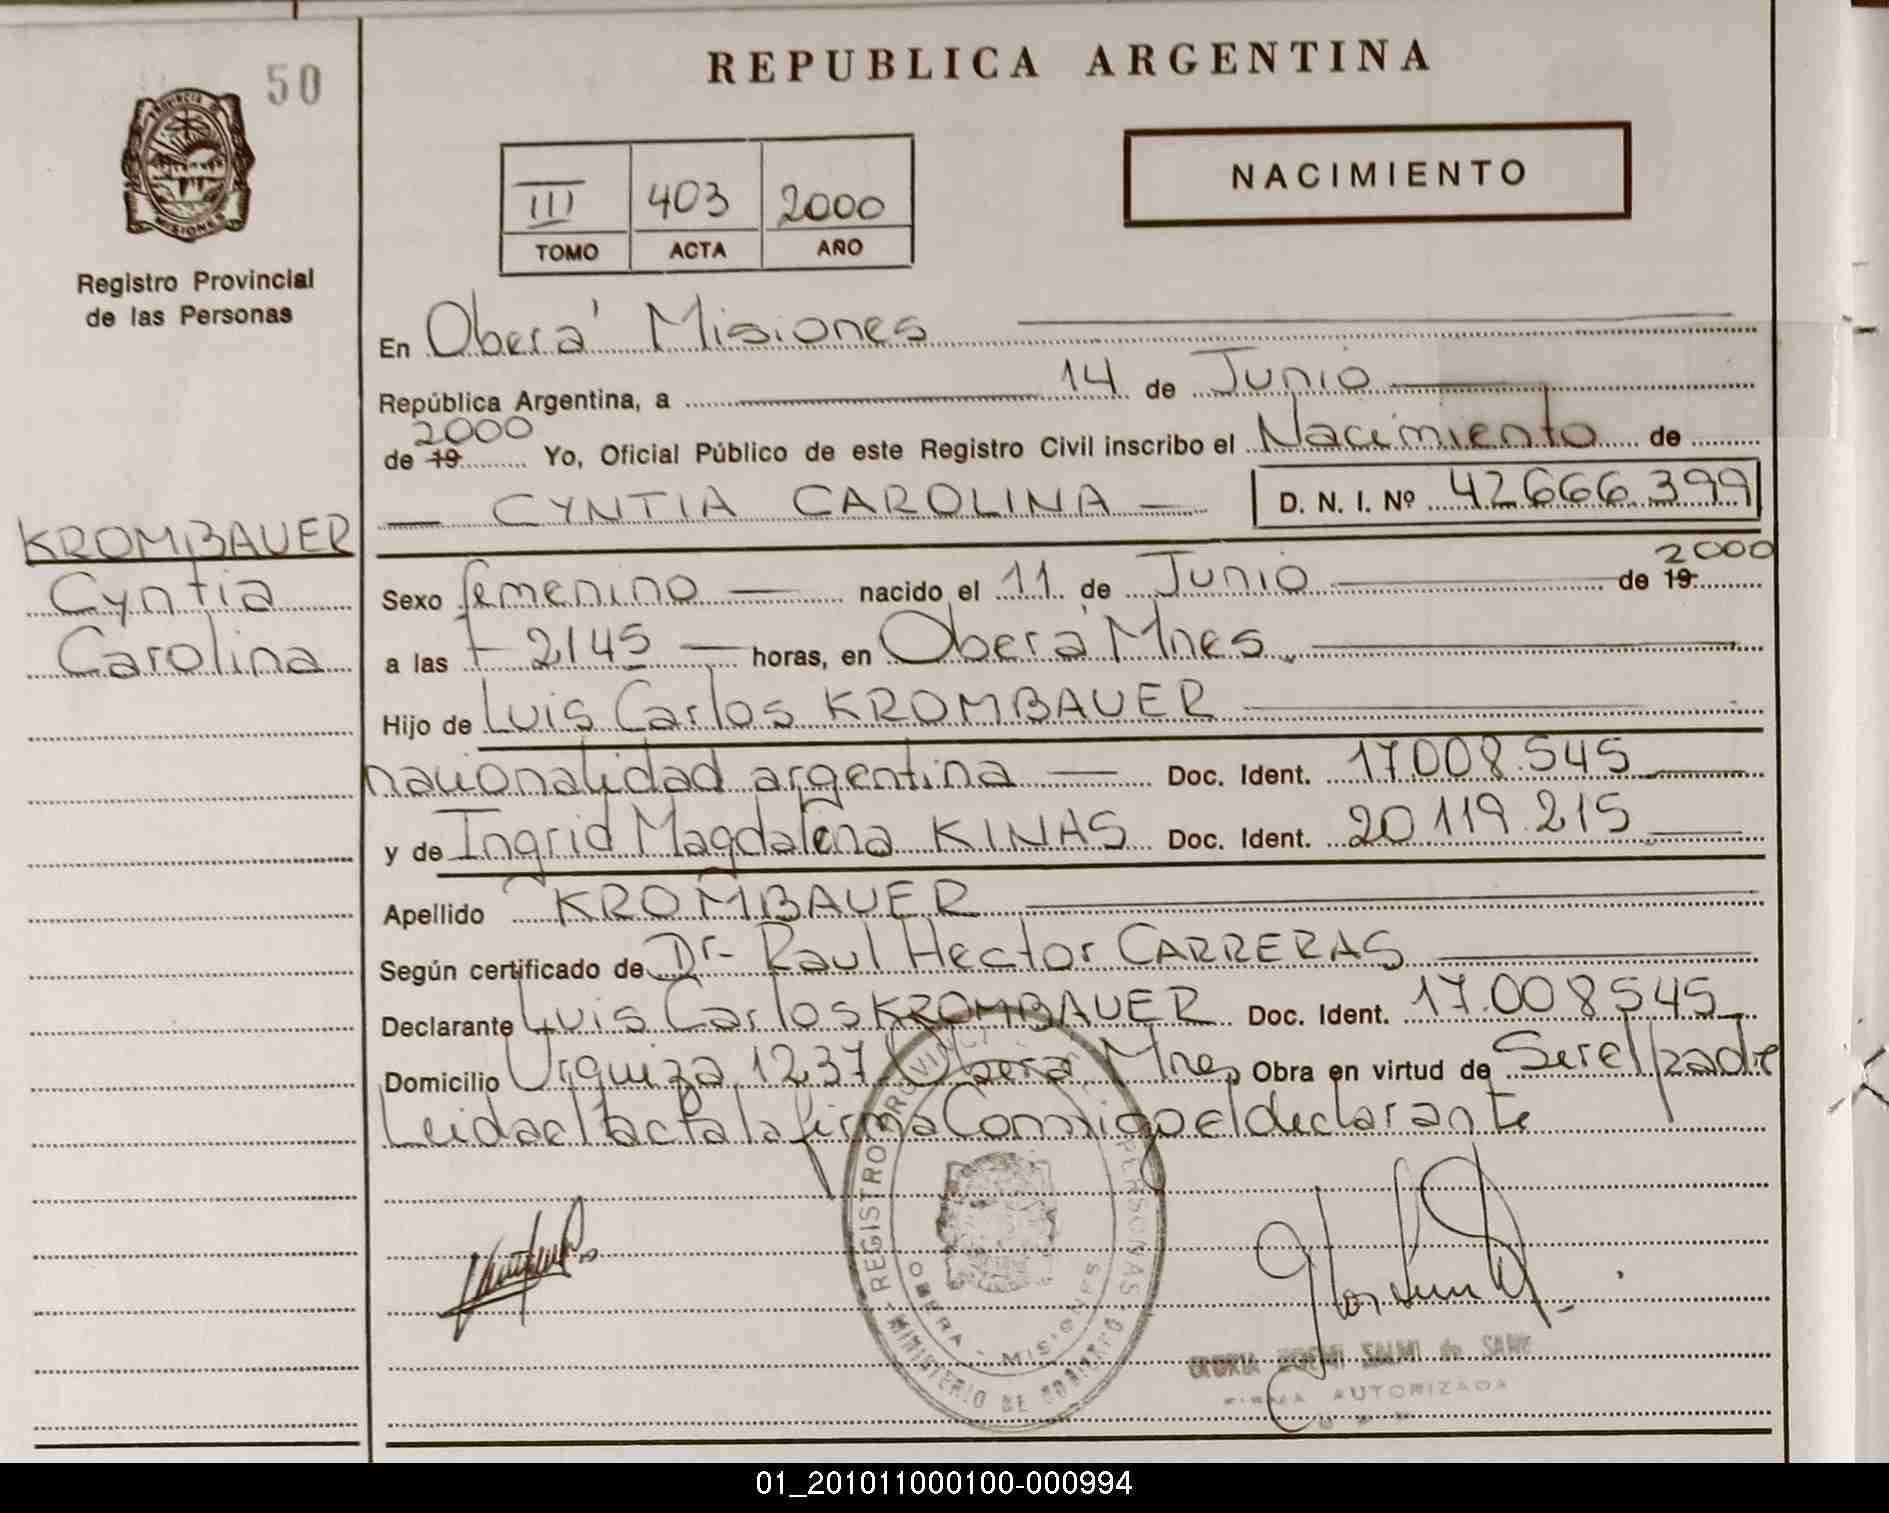 50
REPUBLICA ARGENTINA
NACIMIENTO
III 403 2000
TOMO ACTA AÑO
PROVINCIA D MISIONES
Registro Provincial
de las Personas
En Oberá Misiones
República Argentina, a 14 de Junio
2000
de 19 Yo, Oficial Público de este Registro Civil inscribo el Nacimiento de
CYNTIA CAROLINA D. N. I. Nº 42666.399
KROMBAUER
Cyntia
Carolina
2000
Sexo femenino nacido el 11 de Junio de 19
a las 2145 horas, en Oberá Mnes
Hijo de Luis Carlos KROMBAUER
nacionalidad argentina Doc. Ident. 17.008.545
y de Ingrid Magdalena KINAS Doc. Ident. 20.119.215
Apellido KROMBAUER
Según certificado de Dr- Raul Hector CARRERAS
Declarante Luis Carlos KROMBAUER Doc. Ident. 17.008545
Domicilio Urquiza 1237 Oberá Mnes Obra en virtud de Ser el padre
Leida el acta la firma Conmigo el declarante
REGISTRO PROVINCIAL PERSONAS
OBERA - MISIONES
MINISTERIO DE GOBIERNO
de
FIRMA AUTORIZADA
01_201011000100-000994